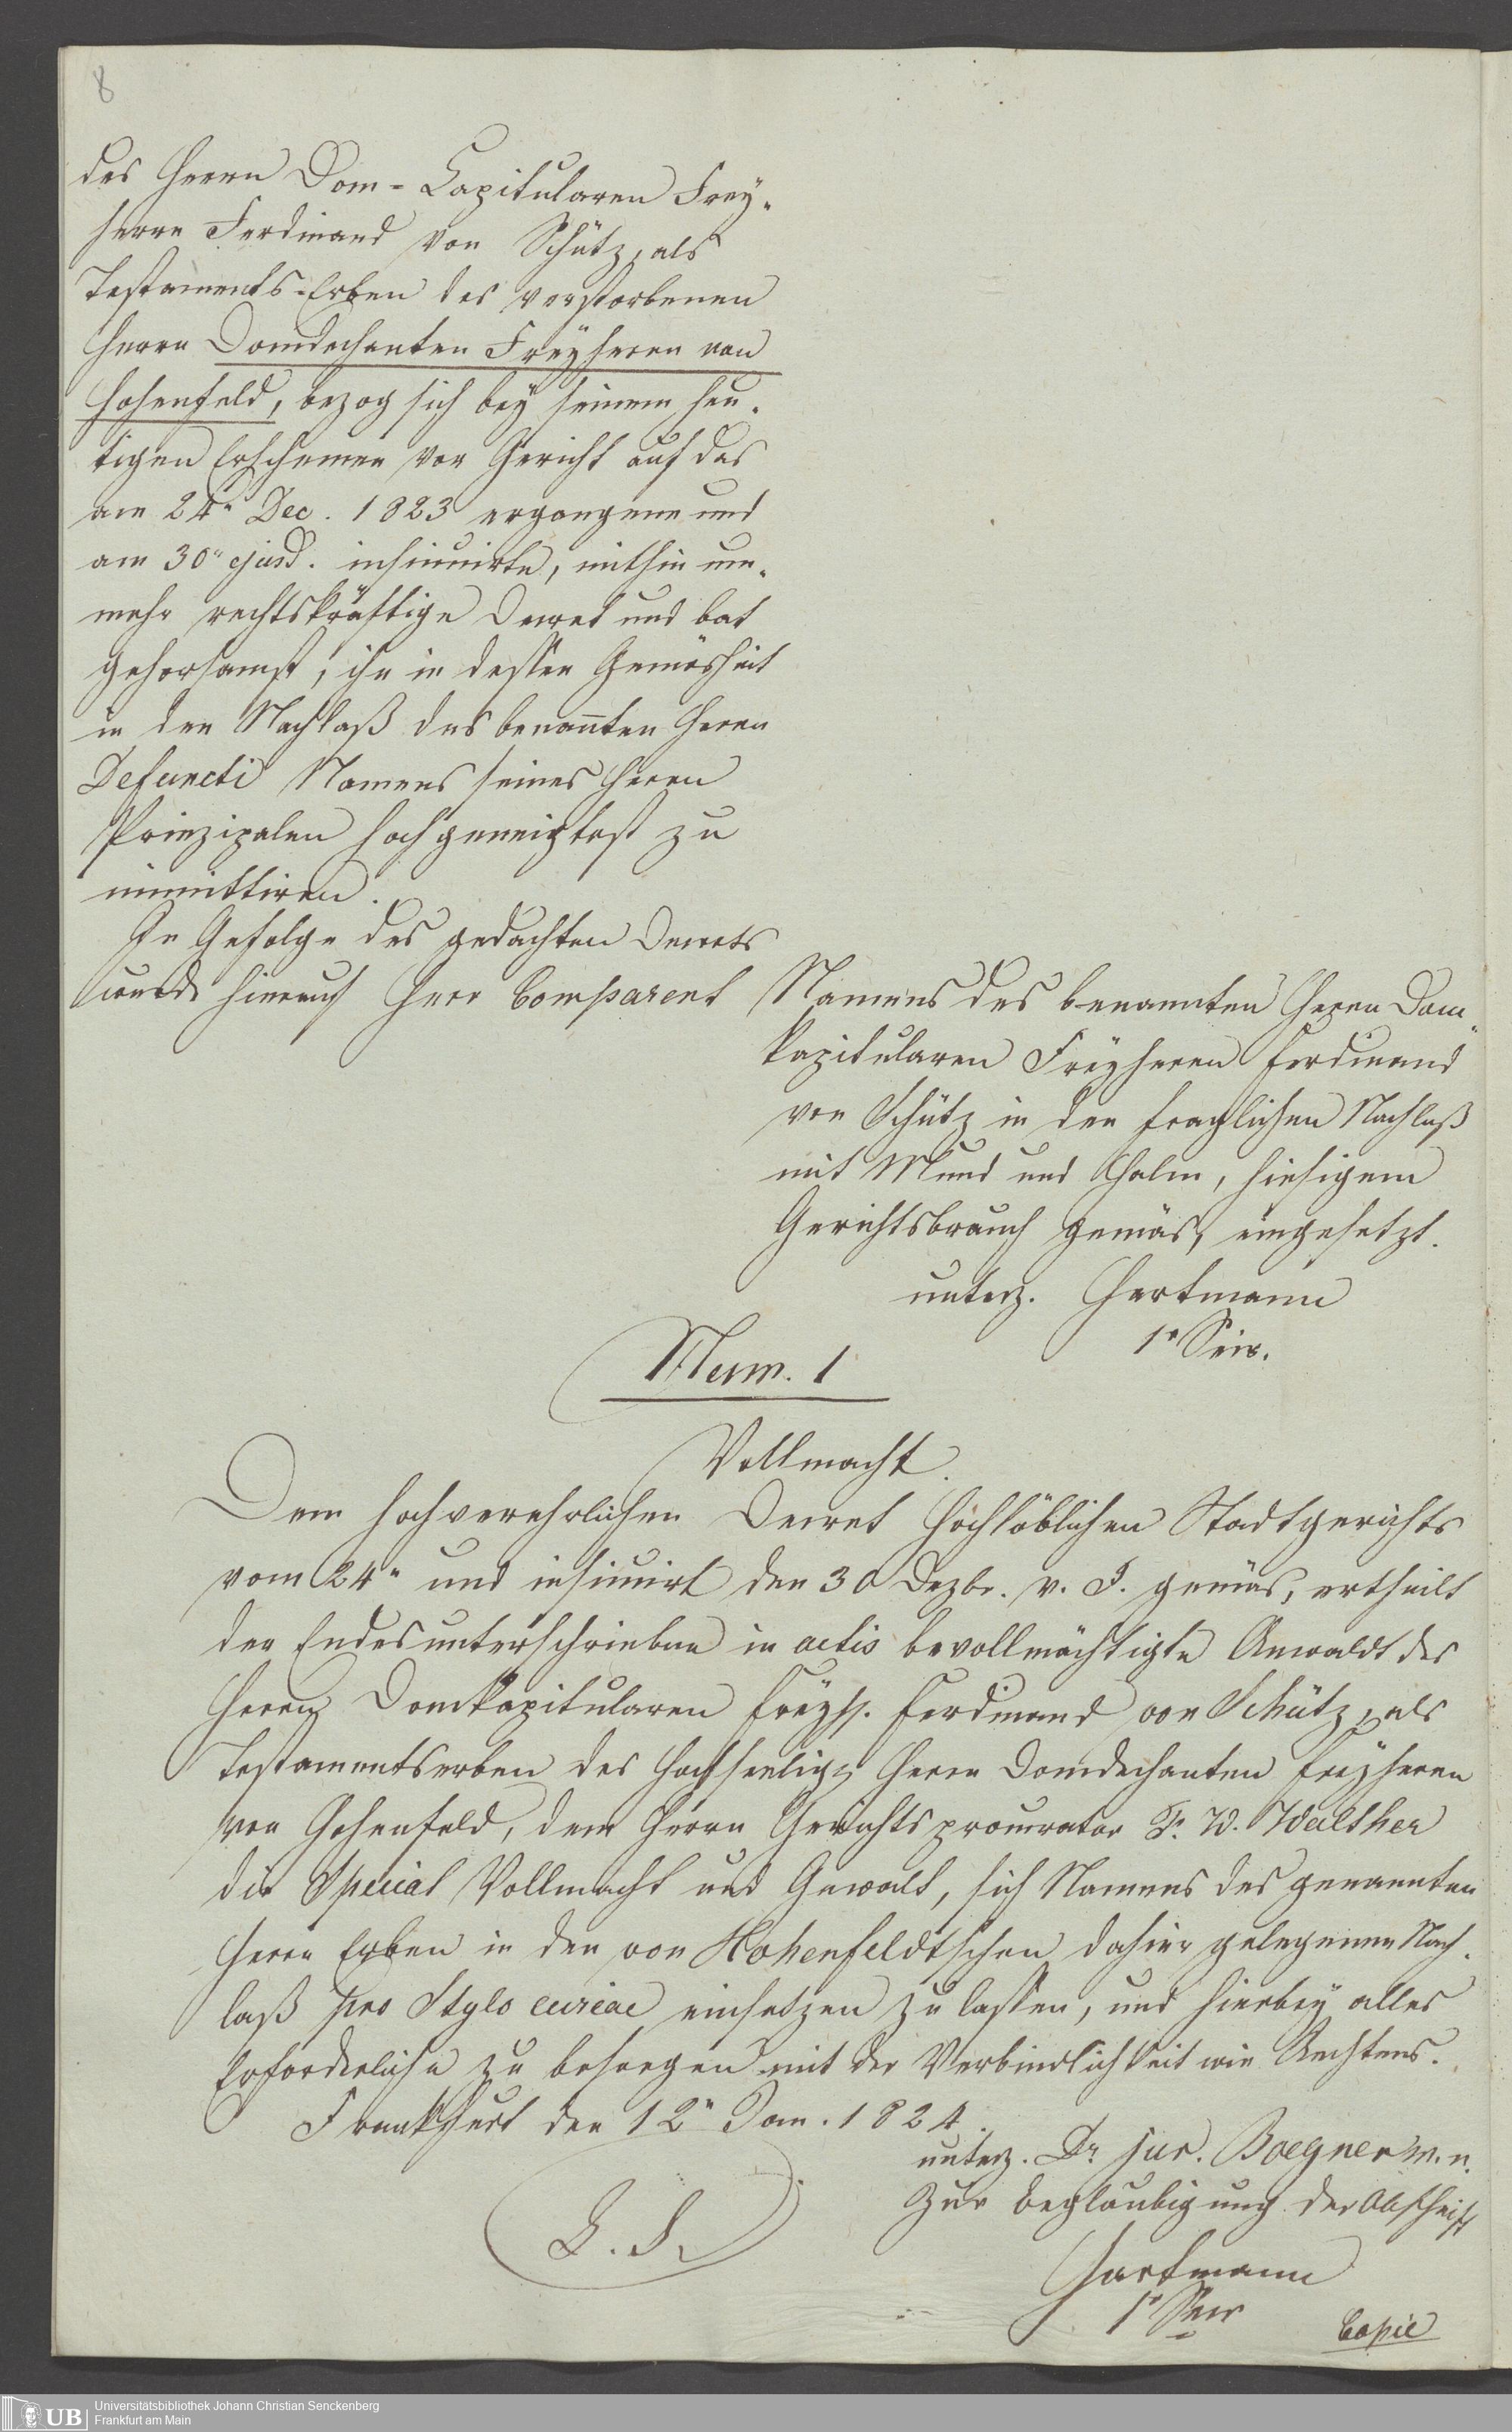 8
des Herrn Dom-Capitularen Frey-
herrn Ferdinand von Schütz, als
Testaments-Erben des verstorbenen
Herrn Domdechanten Freyherrn von
Hohenfeld, bezog sich bey seinem heu-
tigen Erscheinen vor Gericht auf das
am 24n Dec. 1823 ergangene und
am 30n ejusd. insinuirte, mithin nun-
mehr rechtskräftige Decret und bat
gehorsamst, ihn in dessen Gemäsheit
in den Nachlaß des benannten Herrn
Defuncti Namens seines Herrn
Prinzipalen hochgeneigtest zu
immittiren.
In Gefolge des gedachten Decrets
wurde hierauf Herr Comparent
Namens des benannten Herrn Dom-
kapitularen Freyherrn Ferdinand
von Schütz in den fraglichen Nachlaß
mit Mund und Halm, hiesigem
Gerichtsbrauch gemäs, eingesetzt.
unterz. Hartmann
1r Secr.
Num. 1
Vollmacht.
Dem hochverehrlichen Decret Hochlöblichen Stadtgerichts
vom 24n und insinuirt den 30 Dezbr. v. J. gemäs, ertheilt
der Endesunterschriebene in actis bevollmächtigte Anwaldt des
Herrn Domkapitularen Freyh. Ferdinand von Schütz, als
Testamentserben des Hochseelig. Herrn Domdechanten Freyherrn
von Hohenfeld, dem Herrn Gerichtsprocurator F. W. Walther
die Special Vollmacht und Gewalt, sich Namens des genannten
Herrn Erben in den von Hohenfeldtschen dahier gelegenen Nach-
laß pro Stylo curiae einsetzen zu lassen, und hierbey alles
Erforderliche zu besorgen mit der Verbindlichkeit wie Rechtens.
Frankfurt den 12n Jan. 1824.
unterz. Dr jur. Boegner m. n.
Zur Beglaubigung der Abschrift
L. S.
Hartmann
1r Secr
Copie
UB
Universitätsbibliothek Johann Christian Senckenberg
Frankfurt am Main